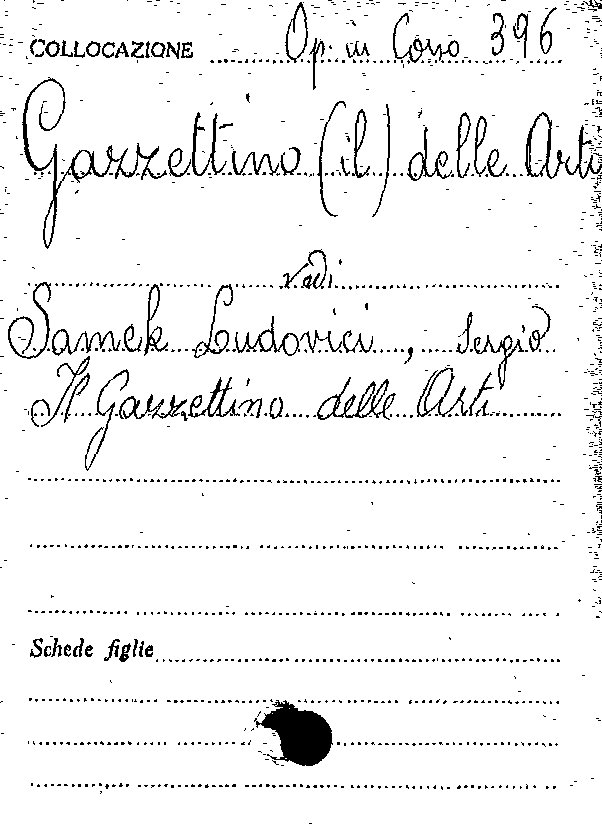 COLLOCAZIONE Op. in Corso 396
Gazzettino (il) delle Arti
vedi
Samek Ludovici, Sergio
Il Gazzettino delle Arti
Schede figlie